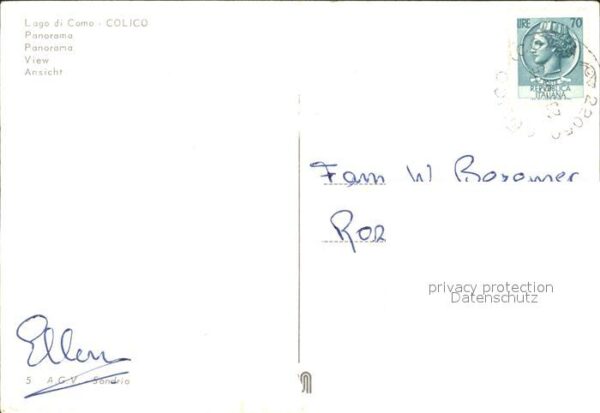 Lago di Como - COLICO
Panorama
Panorama
View
Ansicht
LIRE 70
REPVBBLICA
ITALIANA
Fam W Bosomer
Ror
privacy protection
Datenschutz
Ellen
5 A.G.V. Sondrio